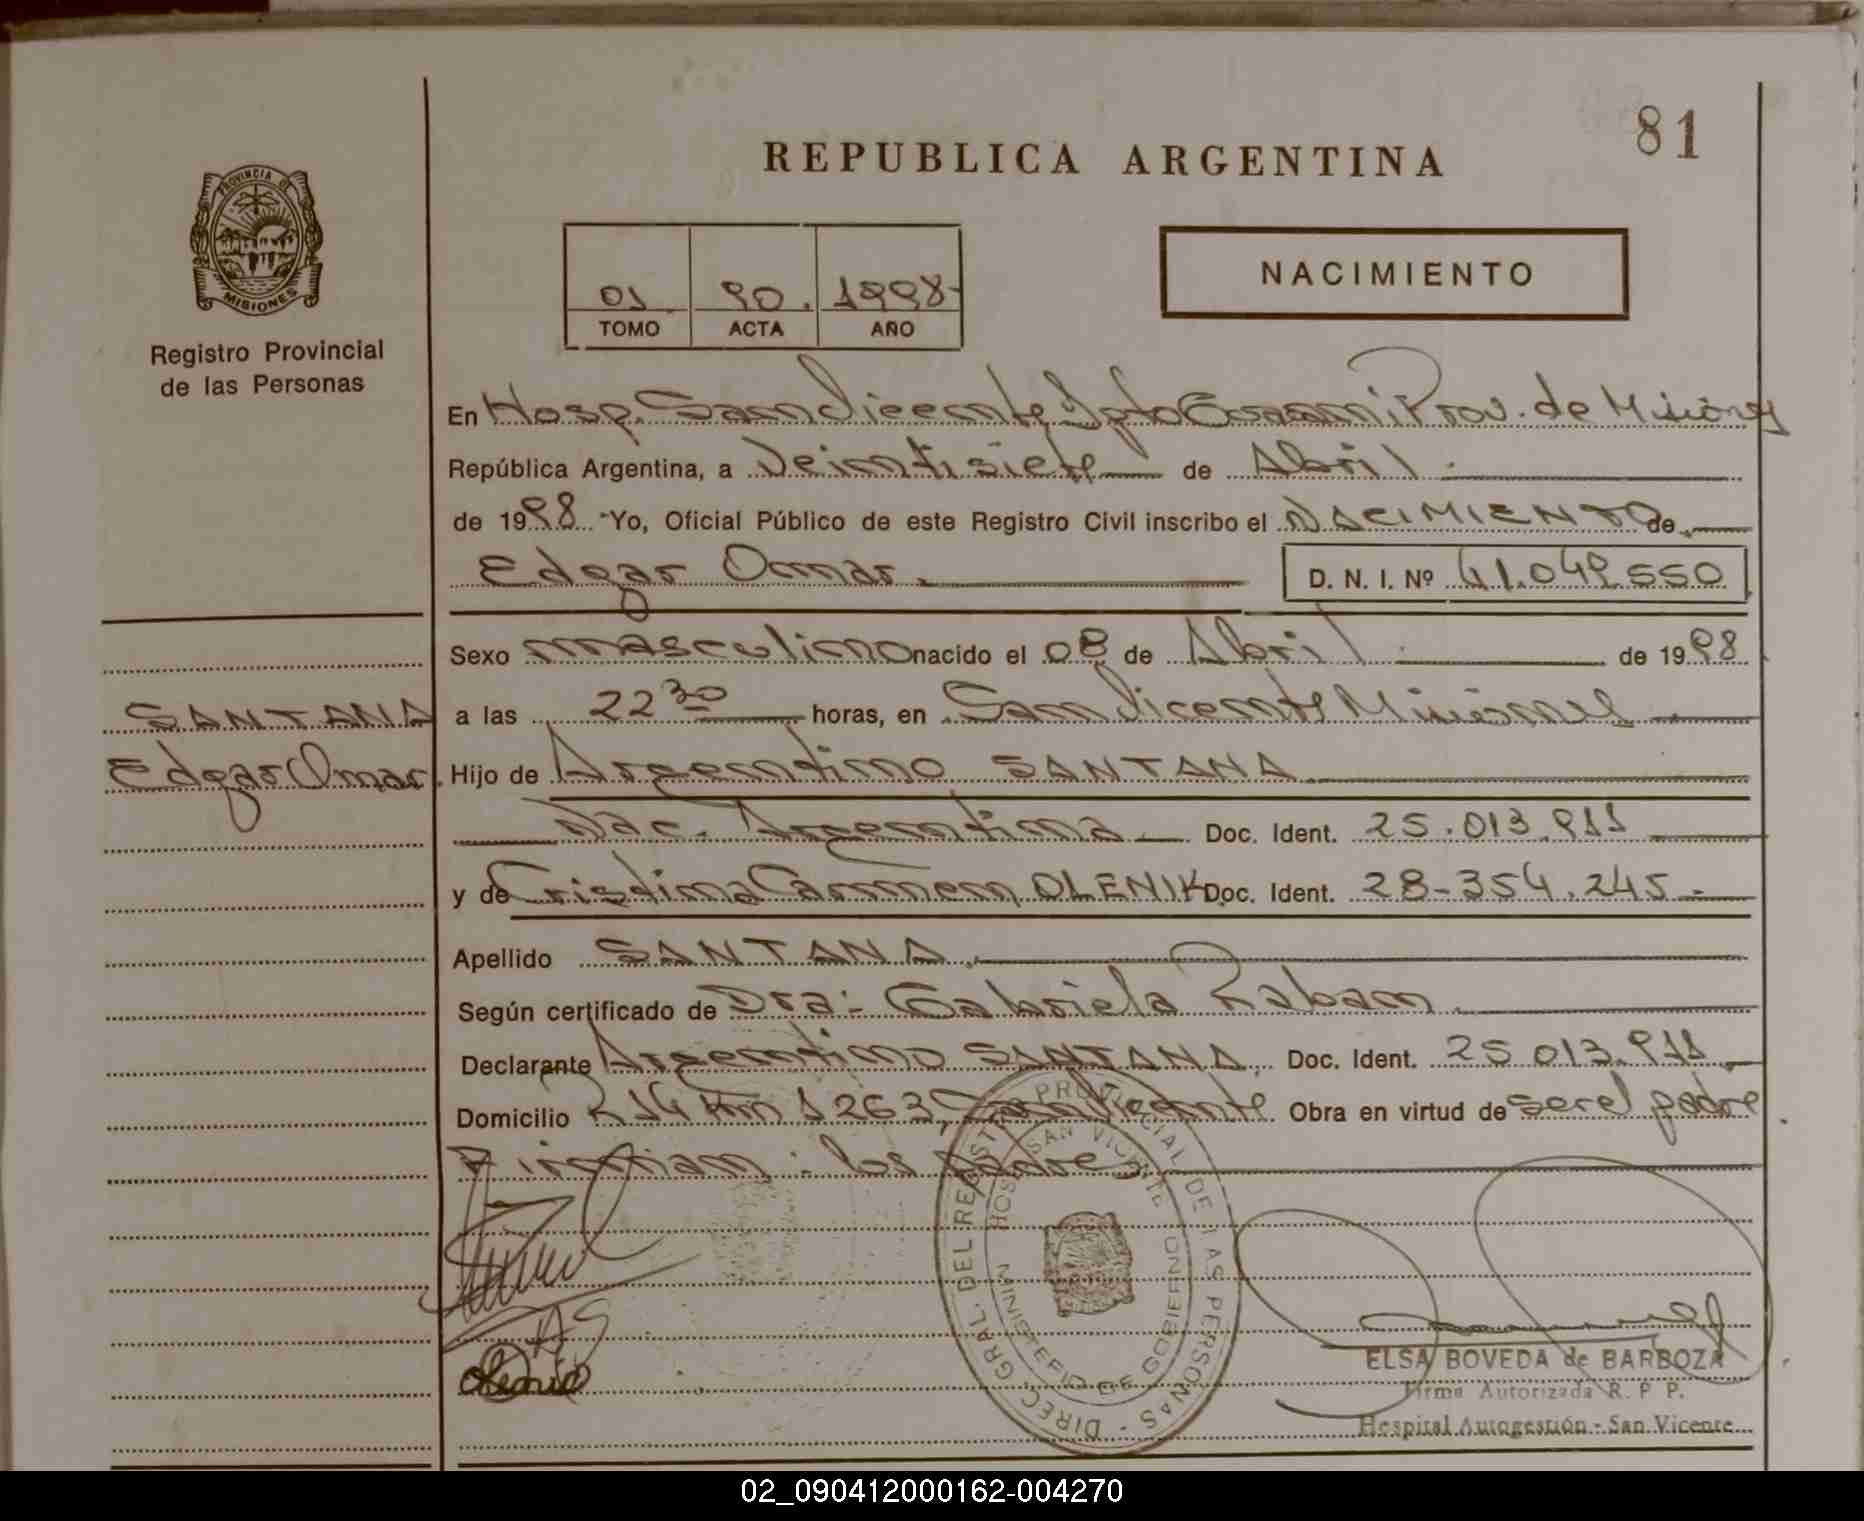 81
REPUBLICA ARGENTINA
PROVINCIA DE
MISIONES
Registro Provincial
de las Personas
01 90. 1998-
TOMO ACTA AÑO
NACIMIENTO
En Hosp. San Vicente Dpto Guaraní Prov. de Misiones
República Argentina, a Veintisiete de Abril.
de 1998 -Yo, Oficial Público de este Registro Civil inscribo el NACIMIENTO de
Edgar Omar. D. N. I. Nº 41.049.550
Sexo masculino nacido el 08 de Abril de 1998
SANTANA a las 22 30 horas, en San Vicente Misiones
Edgar Omar. Hijo de Argentino SANTANA
Nac. Argentina Doc. Ident. 25.013.911
y de Cristina Carmen OLENIK Doc. Ident. 28-354.245-
Apellido SANTANA.
Según certificado de Dra: Gabriela Raban
Declarante Argentino SANTANA. Doc. Ident. 25.013.911
Domicilio R 14 Km 1263, San Vicente Obra en virtud de ser el padre
Firman: los padres
DIREC. GRAL. DEL REGISTRO PROVINCIAL DE LAS PERSONAS -
HOSP. SAN VICENTE
MINISTERIO DE GOBIERNO
ELSA BOVEDA de BARBOZA
Firma Autorizada R. P. P.
Hospital Autogestión - San Vicente
02_090412000162-004270